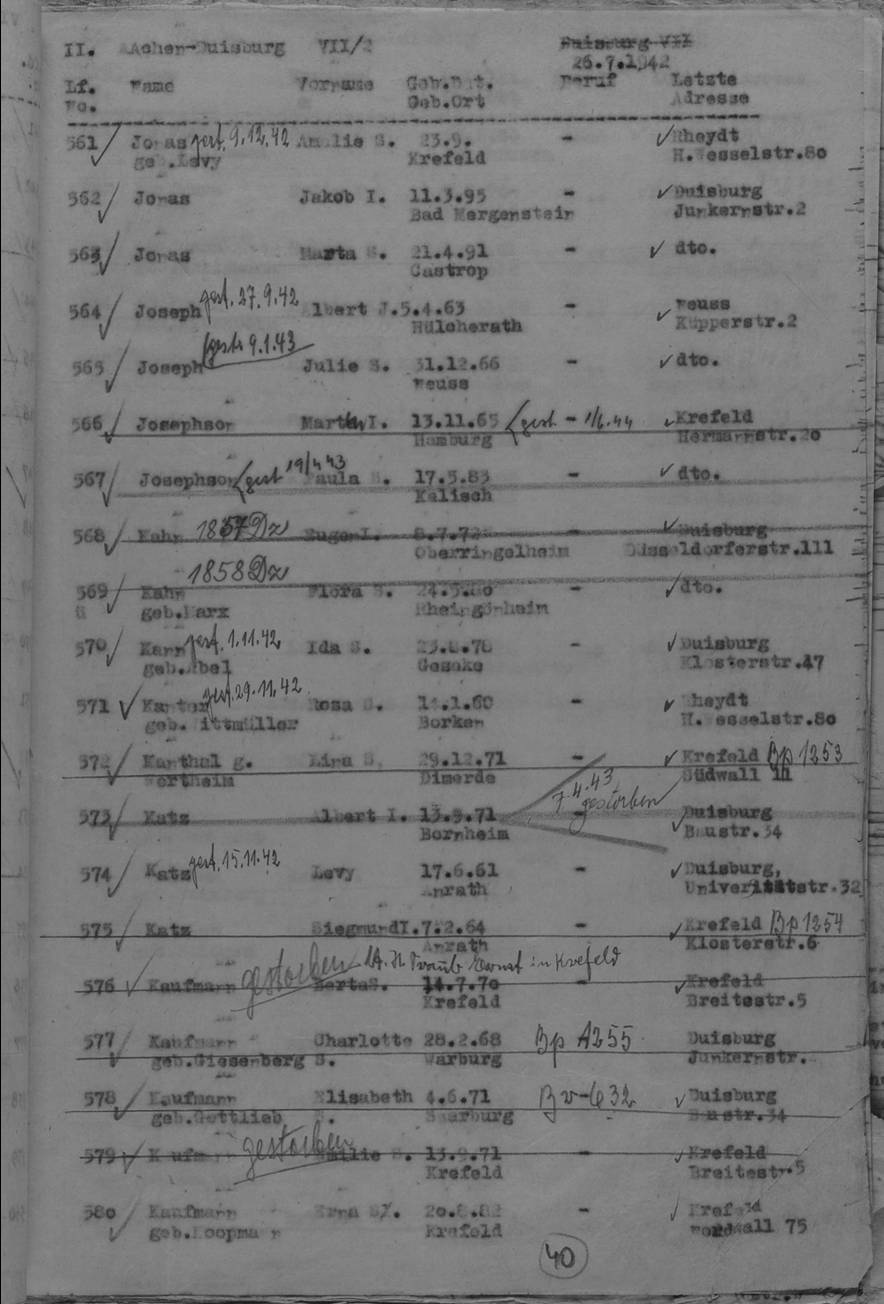 II. Aachen-Duisburg VII/2 Duisburg VII
26.7.1942
Lf. Name Vorname Geb.Dat. Beruf Letzte
No. Geb.Ort Adresse
561 Jonas gest. 9.12.42 Amalie S. 23.9. - Rheydt
geb.Levy Krefeld H.Wesselstr.80
562 Jonas Jakob I. 11.3.95 - Duisburg
Bad Mergenstein Junkernstr.2
563 Jonas Marta S. 21.4.91 - dto.
Castrop
564 Joseph gest. 27.9.42 Albert J. 5.4.63 - Neuss
Hülcherath Küpperstr.2
565 Joseph gest. 9.1.43 Julie S. 31.12.66 - dto.
Neuss
566 Josephson I. 13.11.65 gest. - 1/6.44 Krefeld
Hamburg Hermannstr.20
567 Josephson gest 19/4 43 Paula S. 17.5.83 - dto.
Kalisch
568 Kahn Dz Eugen I. 8.7.72 - Duisburg
Oberringelheim Düsseldorferstr.111
569 Kahn 1858 Dz Flora S. - dto.
geb.Marx Rheingönheim
570 gest. 1.11.42 Ida S. - Duisburg
geb.Abel Geseke Klosterstr.47
571 Kantor gest. 29.11.42 Rosa S. - Rheydt
geb. Wittmüller Borken H.Wesselstr.80
572 g. S. 29.12.71 - Krefeld Bp 1253
Wertheim Dinerde Südwall 11
573 Katz Albert I. 13.9.71 7.4.43 gestorben Duisburg
Bornheim Baustr.34
574 Katz gest. 15.11.42 Levy 17.6.61 - Duisburg,
Anrath 32
575 Katz Siegmund I. 7.2.64 - Krefeld Bp 1254
Anrath Klosterstr.6
576 Kaufmann gestorben Berta S. 14.7.70 - Krefeld
in Krefeld
Krefeld Breitestr.5
577 Kaufmann Charlotte 28.2.68 Bp 1255 Duisburg
geb.Giesenberg S. Warburg Junkernstr.
578 Kaufmann Elisabeth 4.6.71 Duisburg
geb.Gottlieb S. Saarburg Baustr.34
579 Kaufmann gestorben Emilie S. 13.9.71 - Krefeld
Krefeld Breitestr.5
580 Kaufmann Erna S. 20.8.82 - Krefeld
geb.Koopmann Krefeld Nordwall 75
40